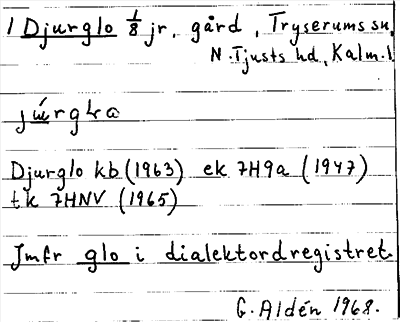 1 Djurglo 1/8 jr, gård, Tryserums sn,
N. Tjusts hd, Kalm. l
Djurglo kb (1963) ek 7H9a (1947)
tk 7HNV (1965)
Jmfr glo i dialektordregistret.
G. Aldén 1968.